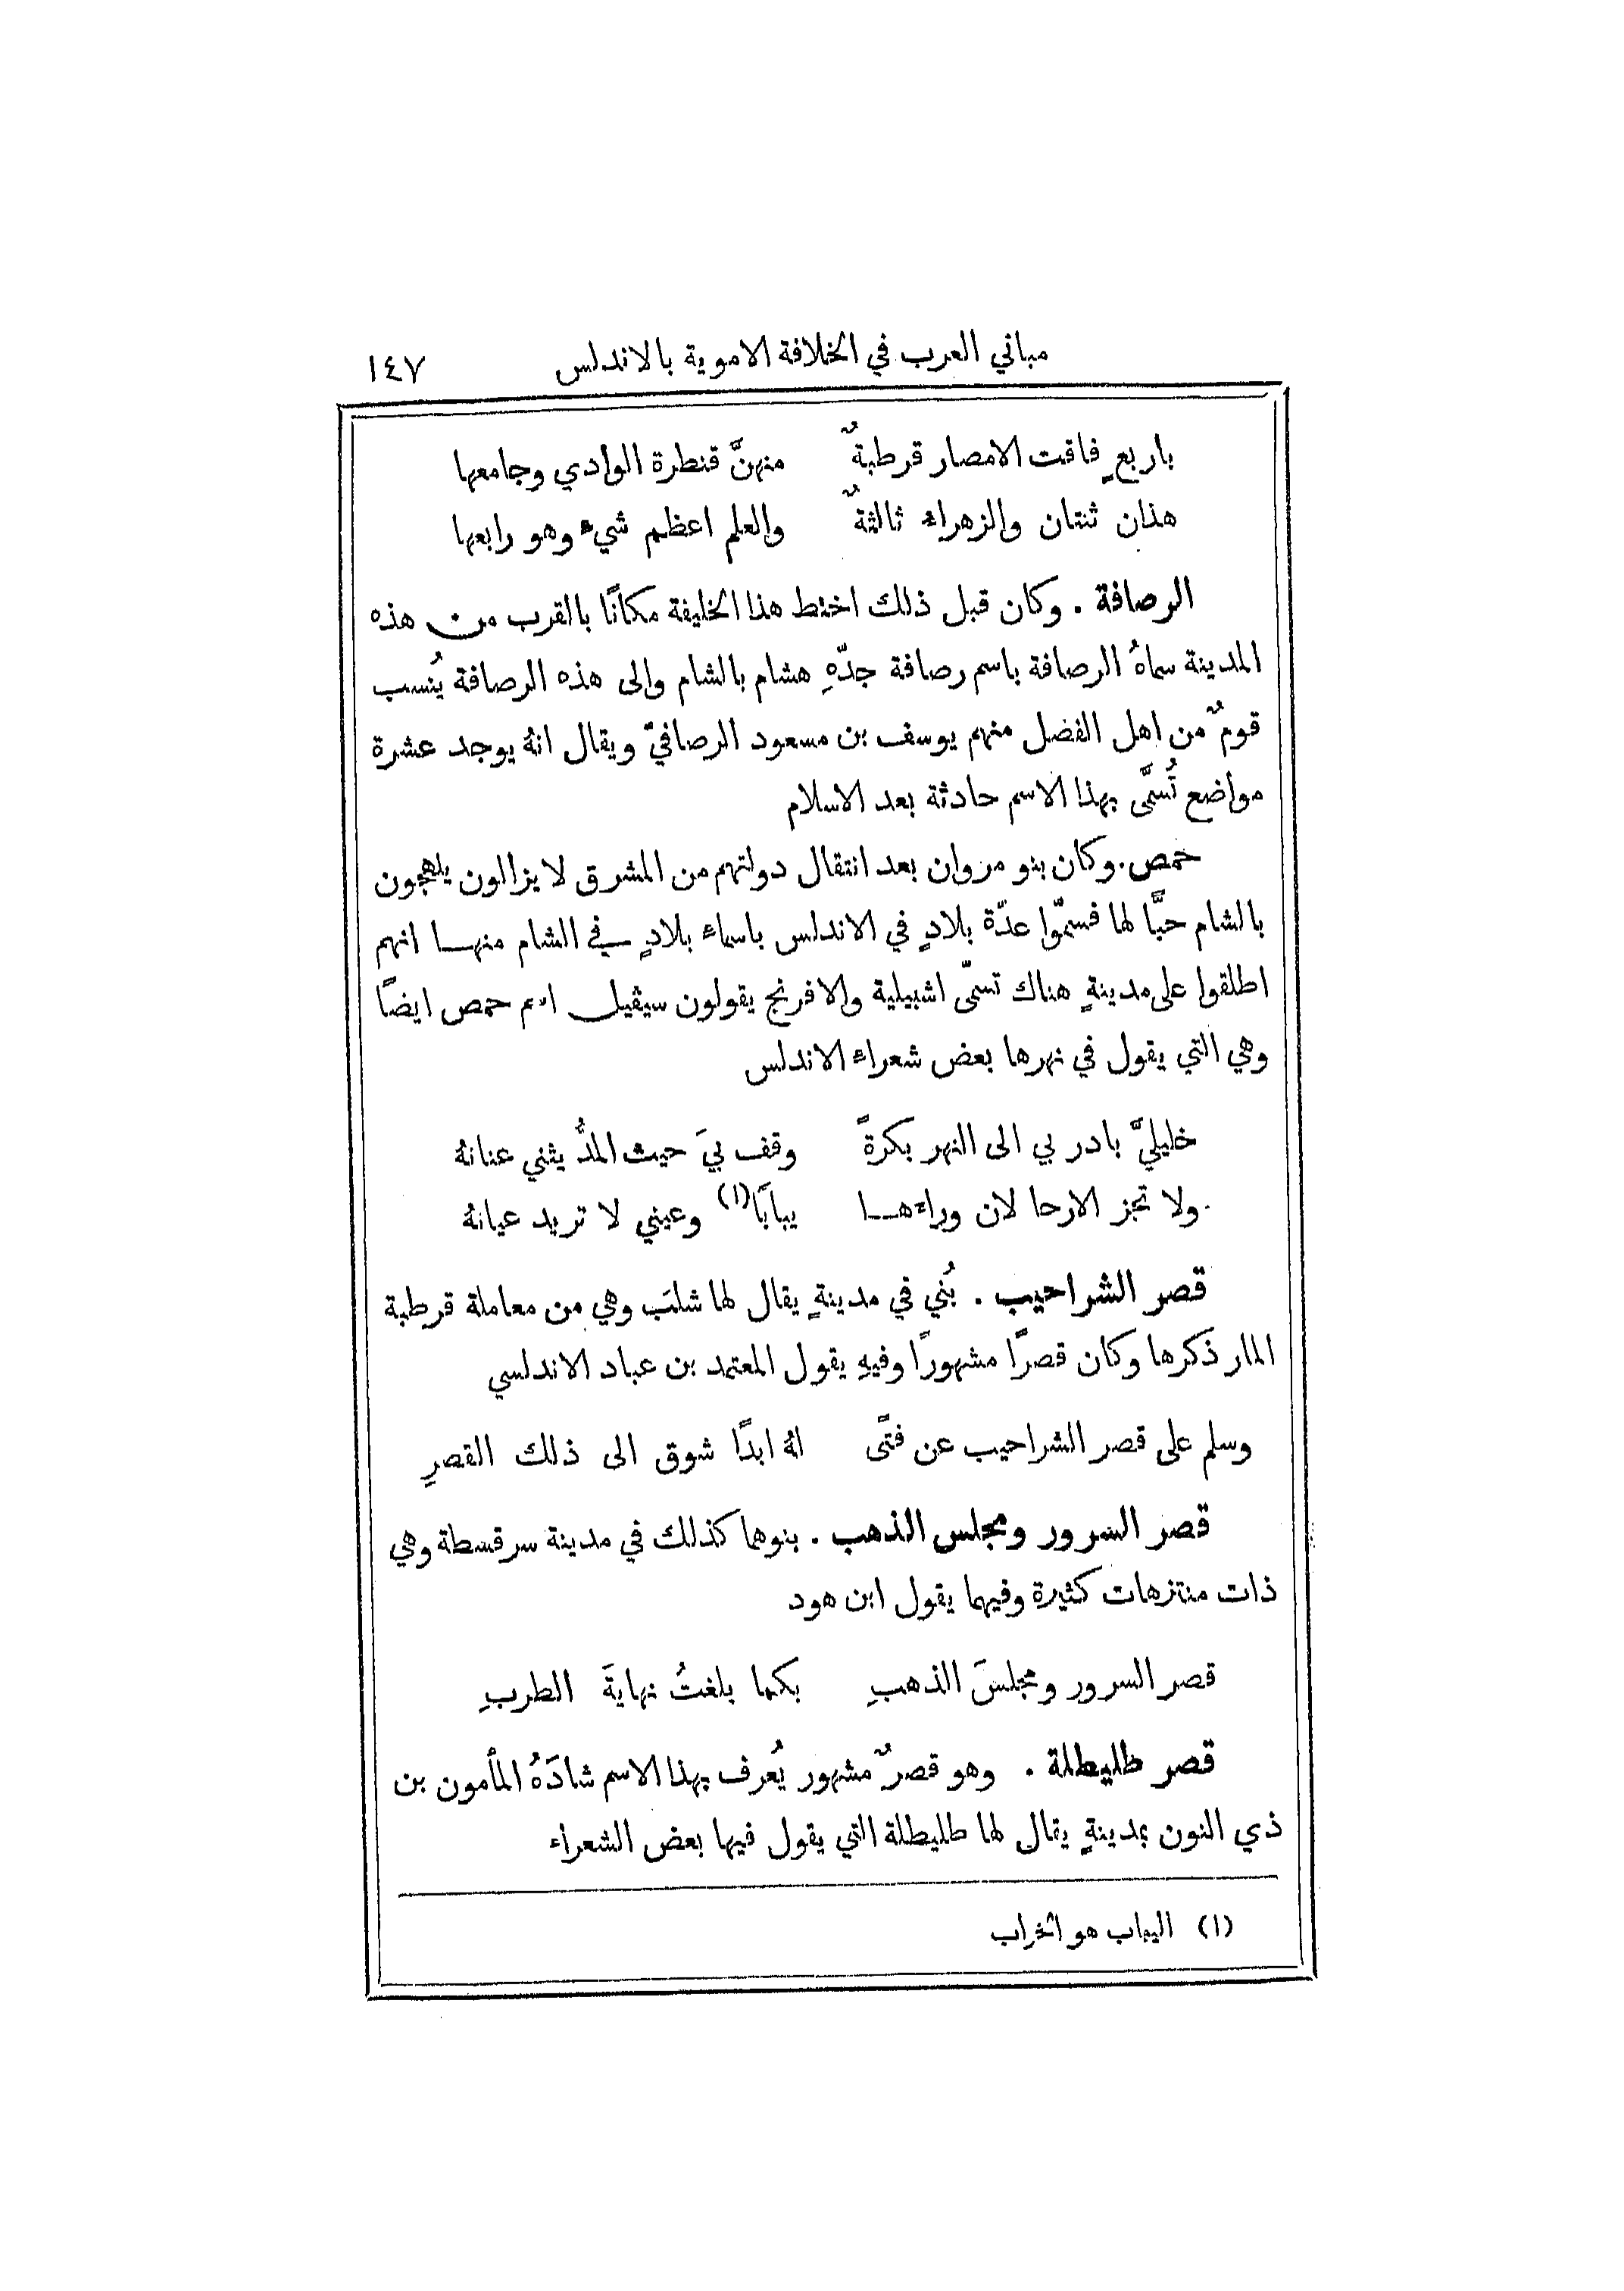 مباني العرب في الخلافة الاموية بالاندلس ١٤٧
باربعٍ فاقت الامصار قرطبةٌ منهنَّ قنطرة الوادي وجامعها
هذان ثنتان والزهراء ثالثةٌ والعلم اعظم شيء وهو رابعها
الرصافة . وكان قبل ذلك اختط هذا الخليفة مكانًا بالقرب من هذه
المدينة سماهُ الرصافة باسم رصافة جدّهِ هشام بالشام والى هذه الرصافة يُنسب
قومٌ من اهل الفضل منهم يوسف بن مسعود الرصافيّ ويقال انهُ يوجد عشرة
مواضع تُسمَّى بهذا الاسم حادثة بعد الاسلام
حمص . وكان بنو مروان بعد انتقال دولتهم من المشرق لا يزالون يلهجون
بالشام حبًّا لها فسمّوا عدّة بلادٍ في الاندلس باسماء بلادٍ في الشام منها انهم
اطلقوا على مدينةٍ هناك تسمّى اشبيلية والافرنج يقولون سيڤيل اسم حمص ايضًا
وهي التي يقول في نهرها بعض شعراء الاندلس
خليليَّ بادر بي الى النهر بكرةً وقف بيَ حيث المدُّ يثني عنانهُ
ولا تجز الارحا لان وراءها يبابًا (١) وعيني لا تريد عيانهُ
قصر الشراحيب . بُني في مدينةٍ يقال لها شلب وهي من معاملة قرطبة
المار ذكرها وكان قصرًا مشهورًا وفيهِ يقول المعتمد بن عباد الاندلسي
وسلم على قصر الشراحيب عن فتًى لهُ ابدًا شوق الى ذلك القصرِ
قصر السرور ومجلس الذهب . بنوهما كذلك في مدينة سرقسطة وهي
ذات منتزهات كثيرة وفيهما يقول ابن هود
قصر السرور ومجلسَ الذهبِ بكما بلغتُ نهايةَ الطربِ
قصر طليطلة . وهو قصرٌ مشهور يُعرف بهذا الاسم شادَهُ المأمون بن
ذي النون بمدينةٍ يقال لها طليطلة التي يقول فيها بعض الشعراء
(١) اليباب هو الخراب